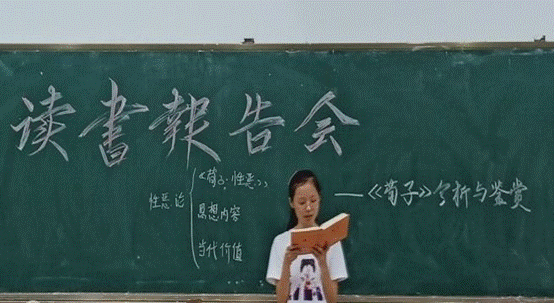 读書報告会
——《荀子》分析与鉴赏
性恶论
《荀子·性恶》
思想内容
当代价值